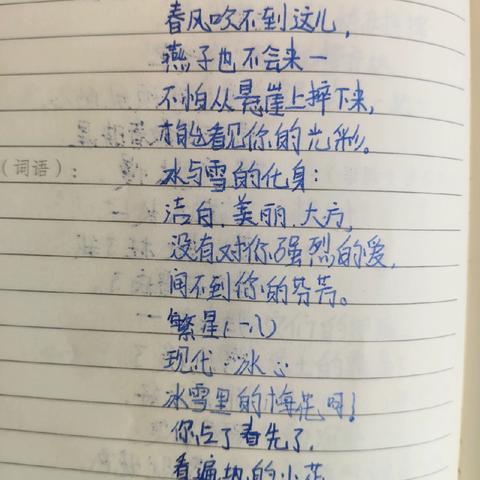 春风吹不到这儿，
燕子也不会来一
不怕从悬崖上摔下来，
看见你的光彩。
（词语）：
冰与雪的化身：
洁白、美丽、大方，
没有对你强烈的爱，
闻不到你的芬芳。
繁星（一八）
现代·冰心
冰雪里的梅花呵！
你占了春先了，
看遍地的小花